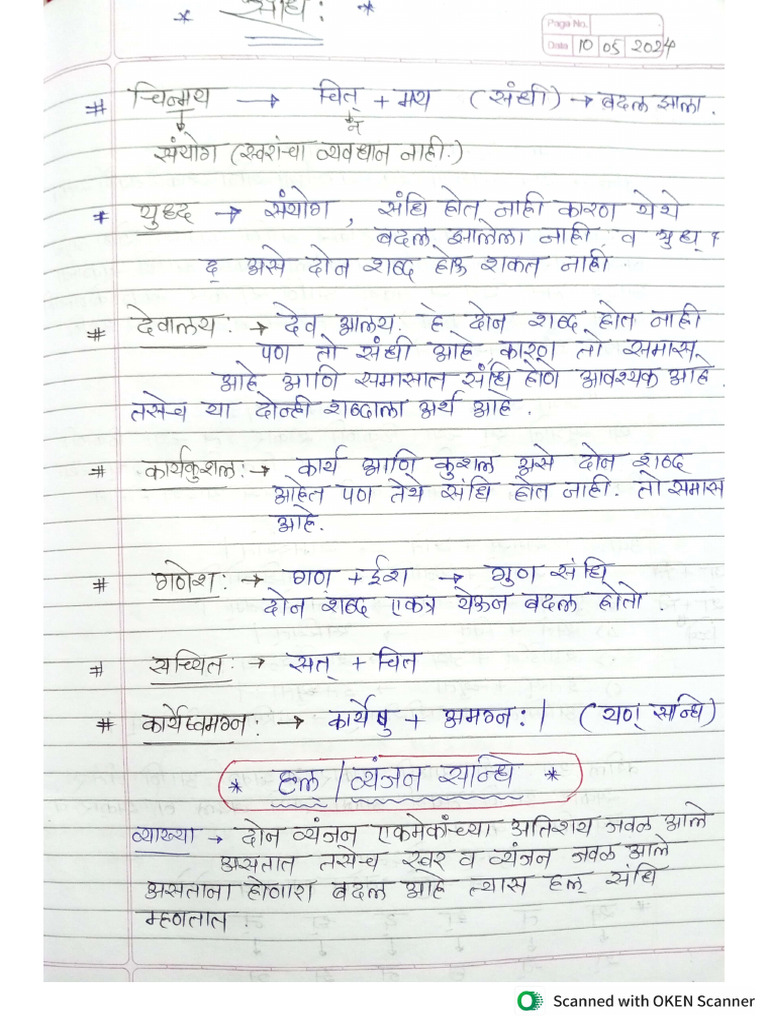 * संधि: *
Page No.
Date 10 05 2024
# चिन्मय → चित् + मय (संधी) → बदल झाला.
↓ न्
संयोग (स्वरांचा व्यवधान नाही.)
* युध्द → संयोग, संधि होत नाही कारण येथे
बदल झालेला नाही. व युध् +
द् असे दोन शब्द होऊ शकत नाही.
# देवालय: → देव आलय: हे दोन शब्द होत नाही
पण तो संधी आहे, कारण तो समास
आहे आणि समासात संधि होणे आवश्यक आहे.
तसेच या दोन्ही शब्दाला अर्थ आहे.
# कार्यकुशल: → कार्य आणि कुशल असे दोन शब्द
आहेत पण तेथे संधि होत नाही. तो समास
आहे.
# गणेश: → गण + ईश → गुण संधि
दोन शब्द एकत्र येऊन बदल होतो.
# सच्चित: → सत् + चित
# कार्येष्वमग्न: → कार्येषु + अमग्न: | (यण् सन्धि)
* हल् / व्यंजन सन्धि *
व्याख्या → दोन व्यंजन एकमेकांच्या अतिशय जवळ आले
असतात तसेच स्वर व व्यंजन जवळ आले
असताना होणारा बदल आहे त्यास हल् संधि
म्हणतात.
Scanned with OKEN Scanner